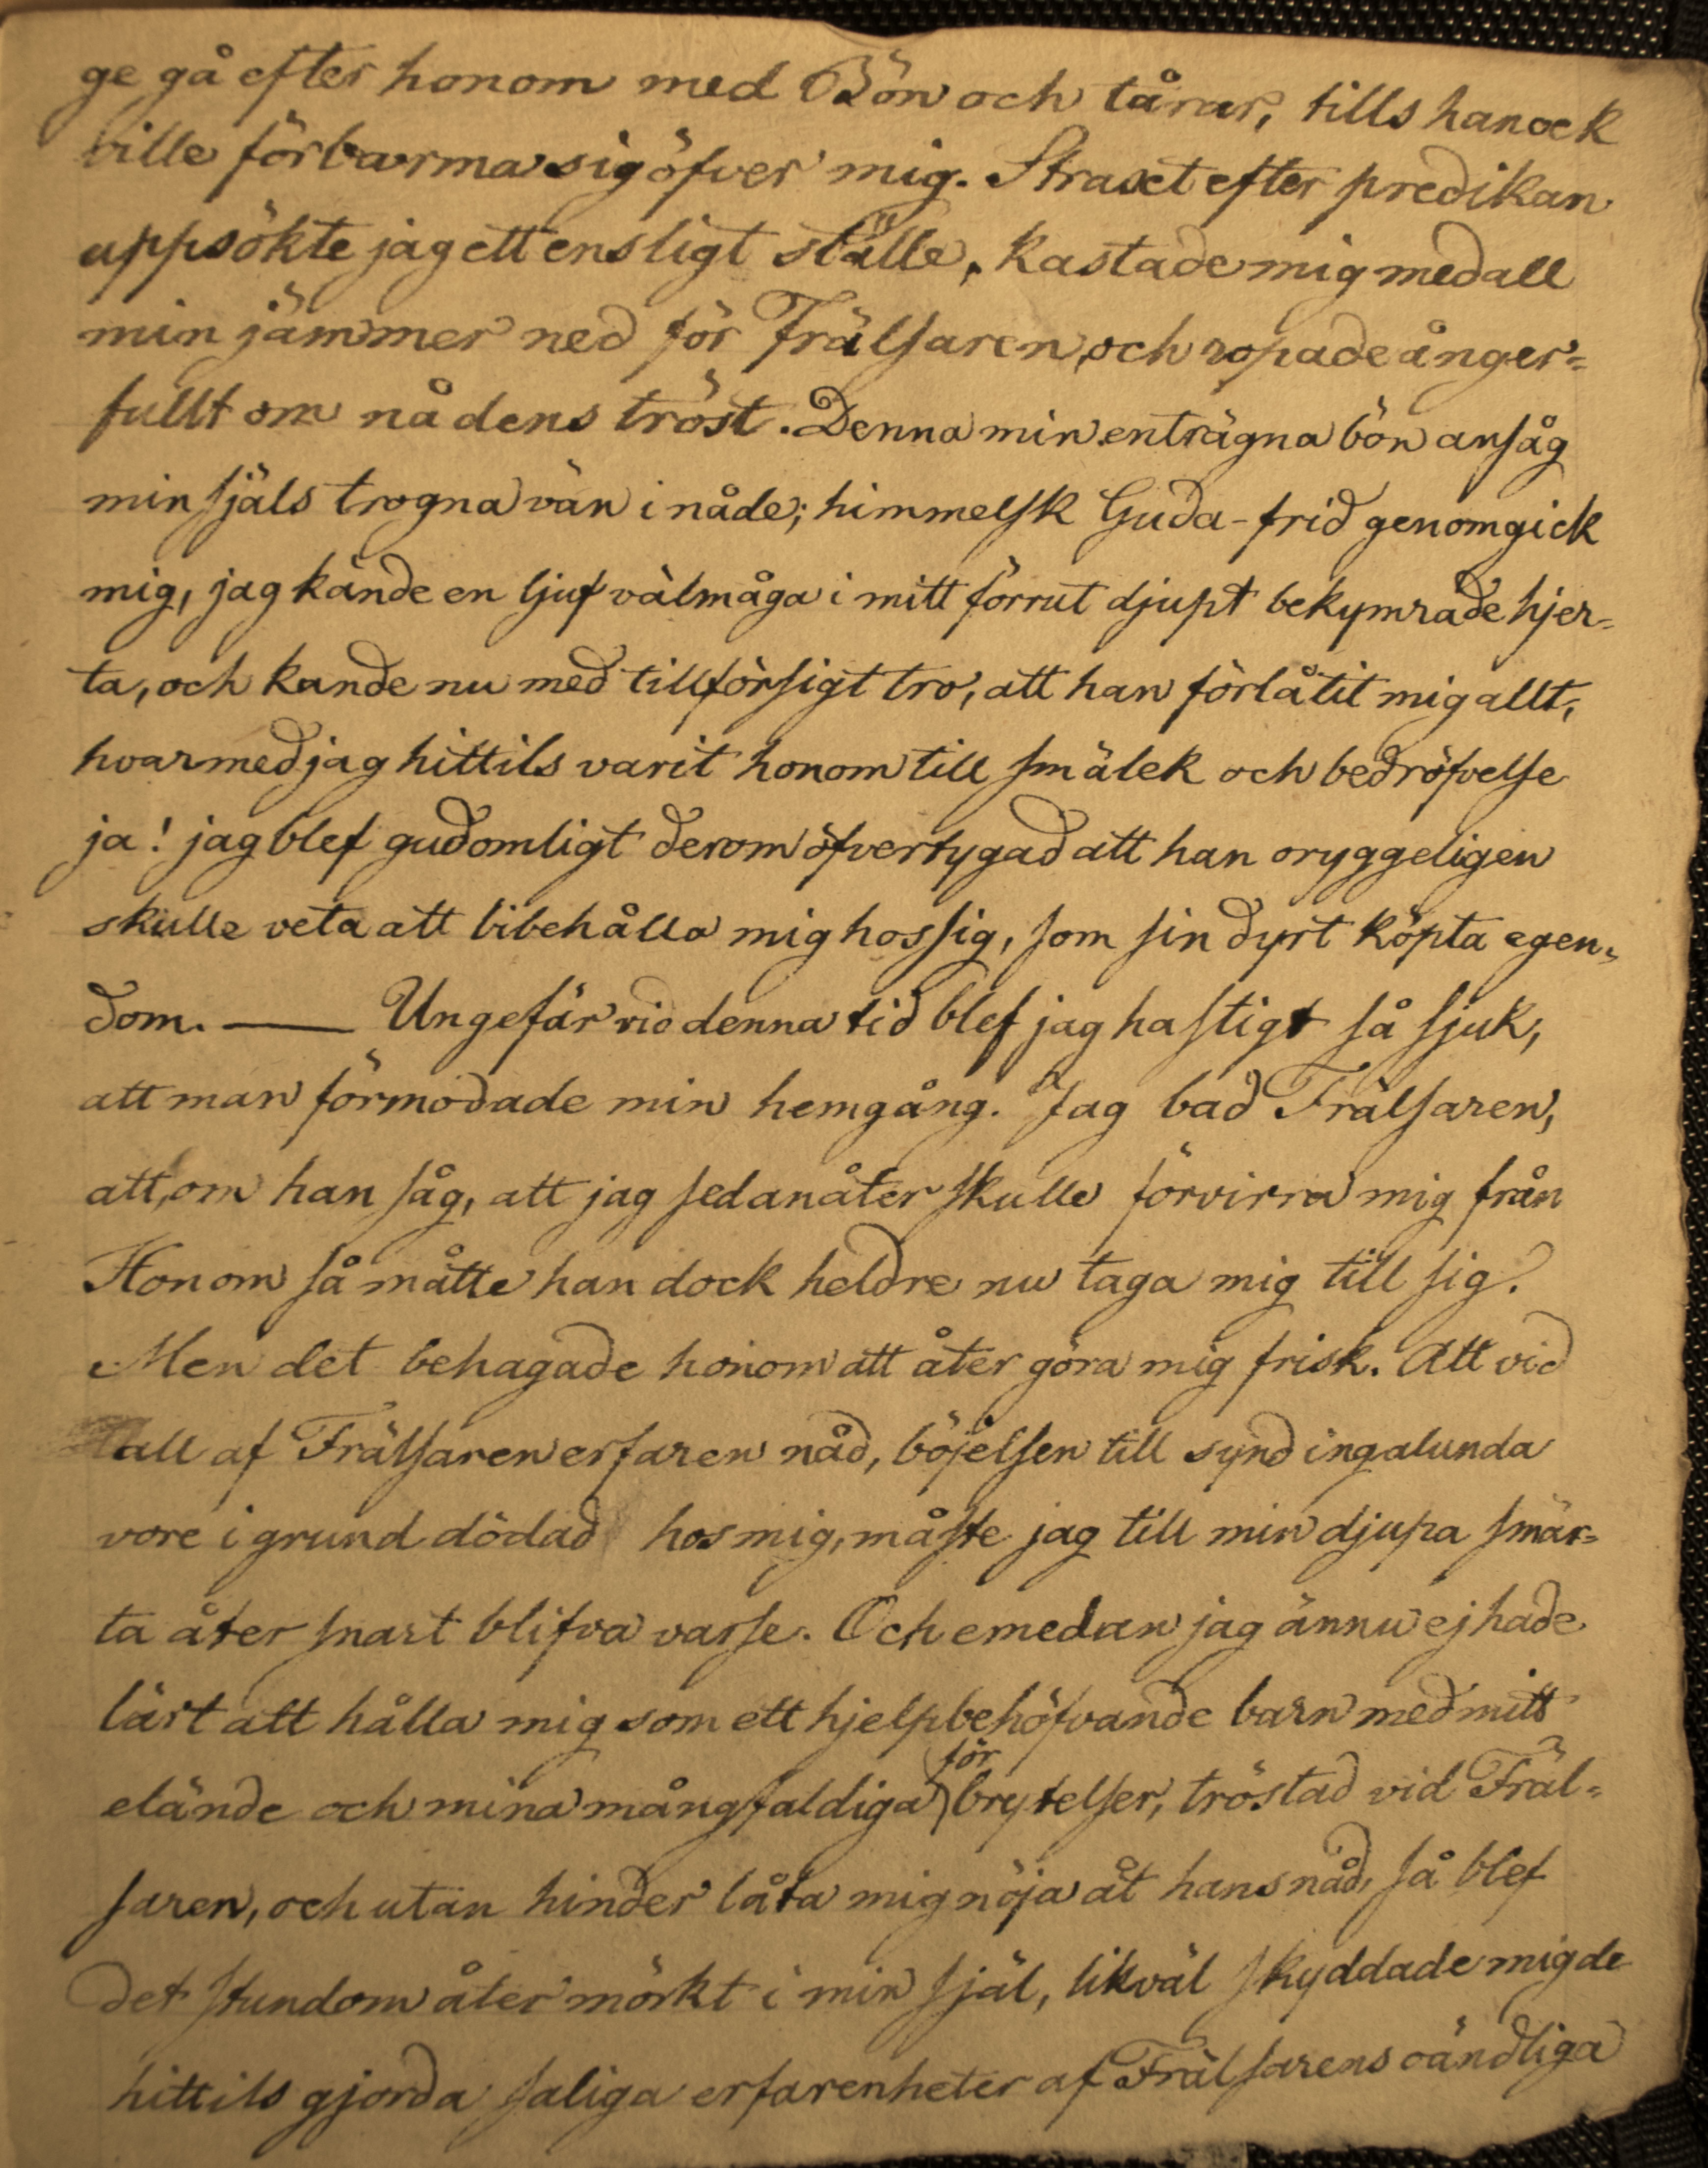 ge gå efter honom med Bön och tårar, tills han ock
ville förbarma sig öfver mig. Straxt efter predikan
uppsökte jag ett ensligt ställe, kastade mig med all
min jämmer ned för Frälsaren, och ropade ånger=
fullt om nådens tröst. Denna min enträgna bön ansåg
min själs trogna vän i nåde; himmelsk Guda-frid genomgick
mig, jag kände en ljuf välmåga i mitt förrut djupt bekymrade hjer=
ta, och kunde nu med tillförsigt tro, att han förlåtit mig allt,
hvarmed jag hittils varit honom till smälek och bedröfvelse
ja! jag blef gudomligt derom öfvertygad att han oryggeligen
skulle veta att bibehålla mig hos sig, som sin dyrt köpta egen=
dom. — Ungefär vid denna tid blef jag hastigt så sjuk,
att man förmodade min hemgång. Jag bad Frälsaren,
att, om han såg, att jag sedan åter skulle förvirra mig från
Honom så måtte han dock heldre nu taga mig till sig.
Men det behagade honom att åter göra mig frisk. Att vid
all af Frälsaren erfaren nåd, böjelsen till synd ingalunda
vore i grund dödad hos mig, måste jag till min djupa smär=
ta åter snart blifva varse. Och emedan jag ännu ej hade
lärt att hålla mig som ett hjelpbehöfvande barn med mitt
elände och mina mångfaldiga förbrytelser, tröstad vid Fräl=
saren, och utan hinder låta mig nöja åt hans nåd, så blef
det stundom åter mörkt i min själ, likväl skyddade mig de
hittils gjorda saliga erfarenheter af Frälsarens oändliga